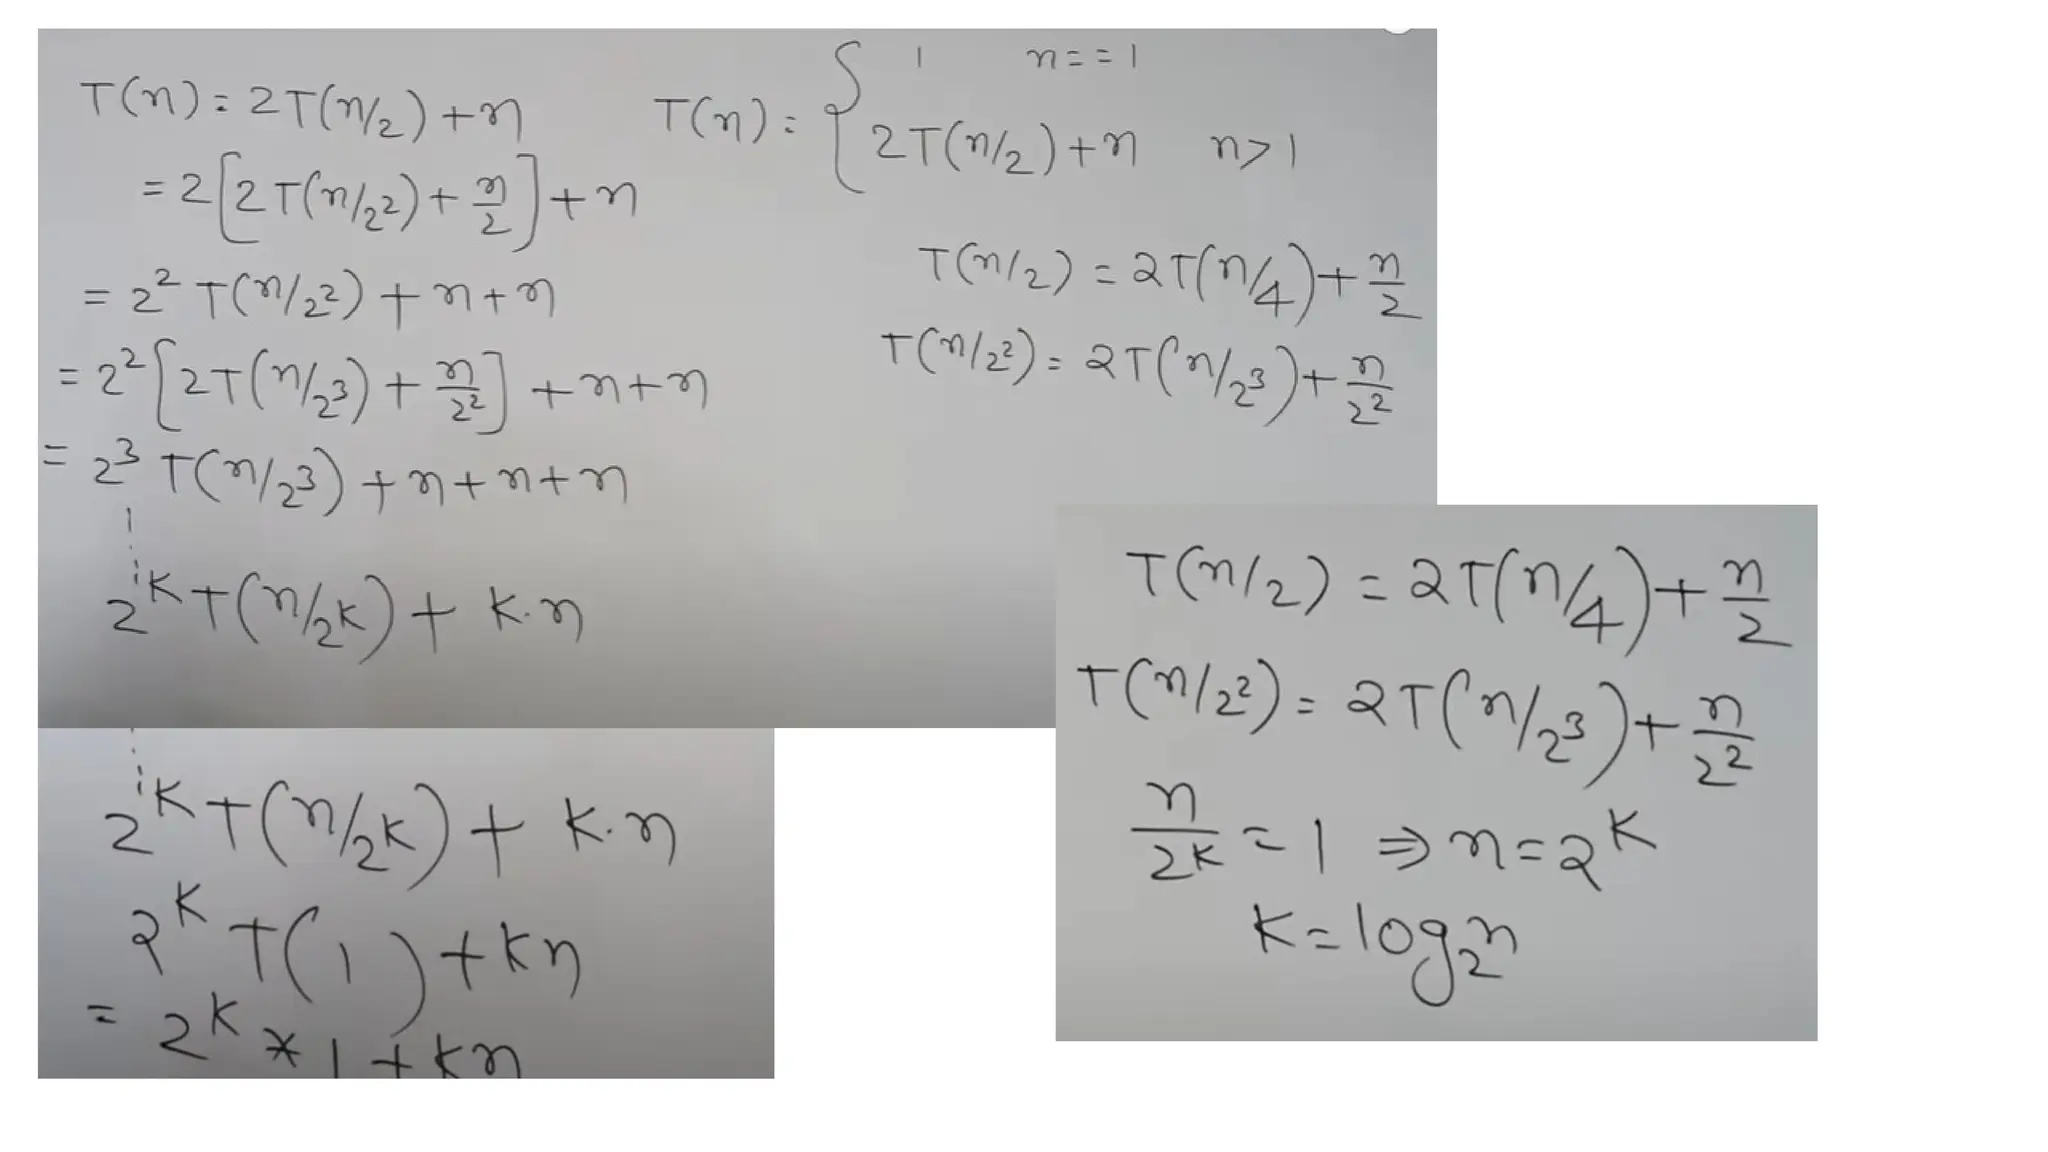 T(n) = 2T(n/2) + n
= 2[2T(n/2²) + n/2] + n
= 2² T(n/2²) + n + n
= 2² [2T(n/2³) + n/2²] + n + n
= 2³ T(n/2³) + n + n + n
2ᴷ T(n/2ᴷ) + K.n
T(n) = { 1 n==1
2T(n/2) + n n>1
T(n/2) = 2T(n/4) + n/2
T(n/2²) = 2T(n/2³) + n/2²
2ᴷ T(n/2ᴷ) + K.n
2ᴷ T(1) + Kn
= 2ᴷ * 1 + Kn
T(n/2) = 2T(n/4) + n/2
T(n/2²) = 2T(n/2³) + n/2²
n/2ᴷ = 1 ⇒ n = 2ᴷ
K = log₂n